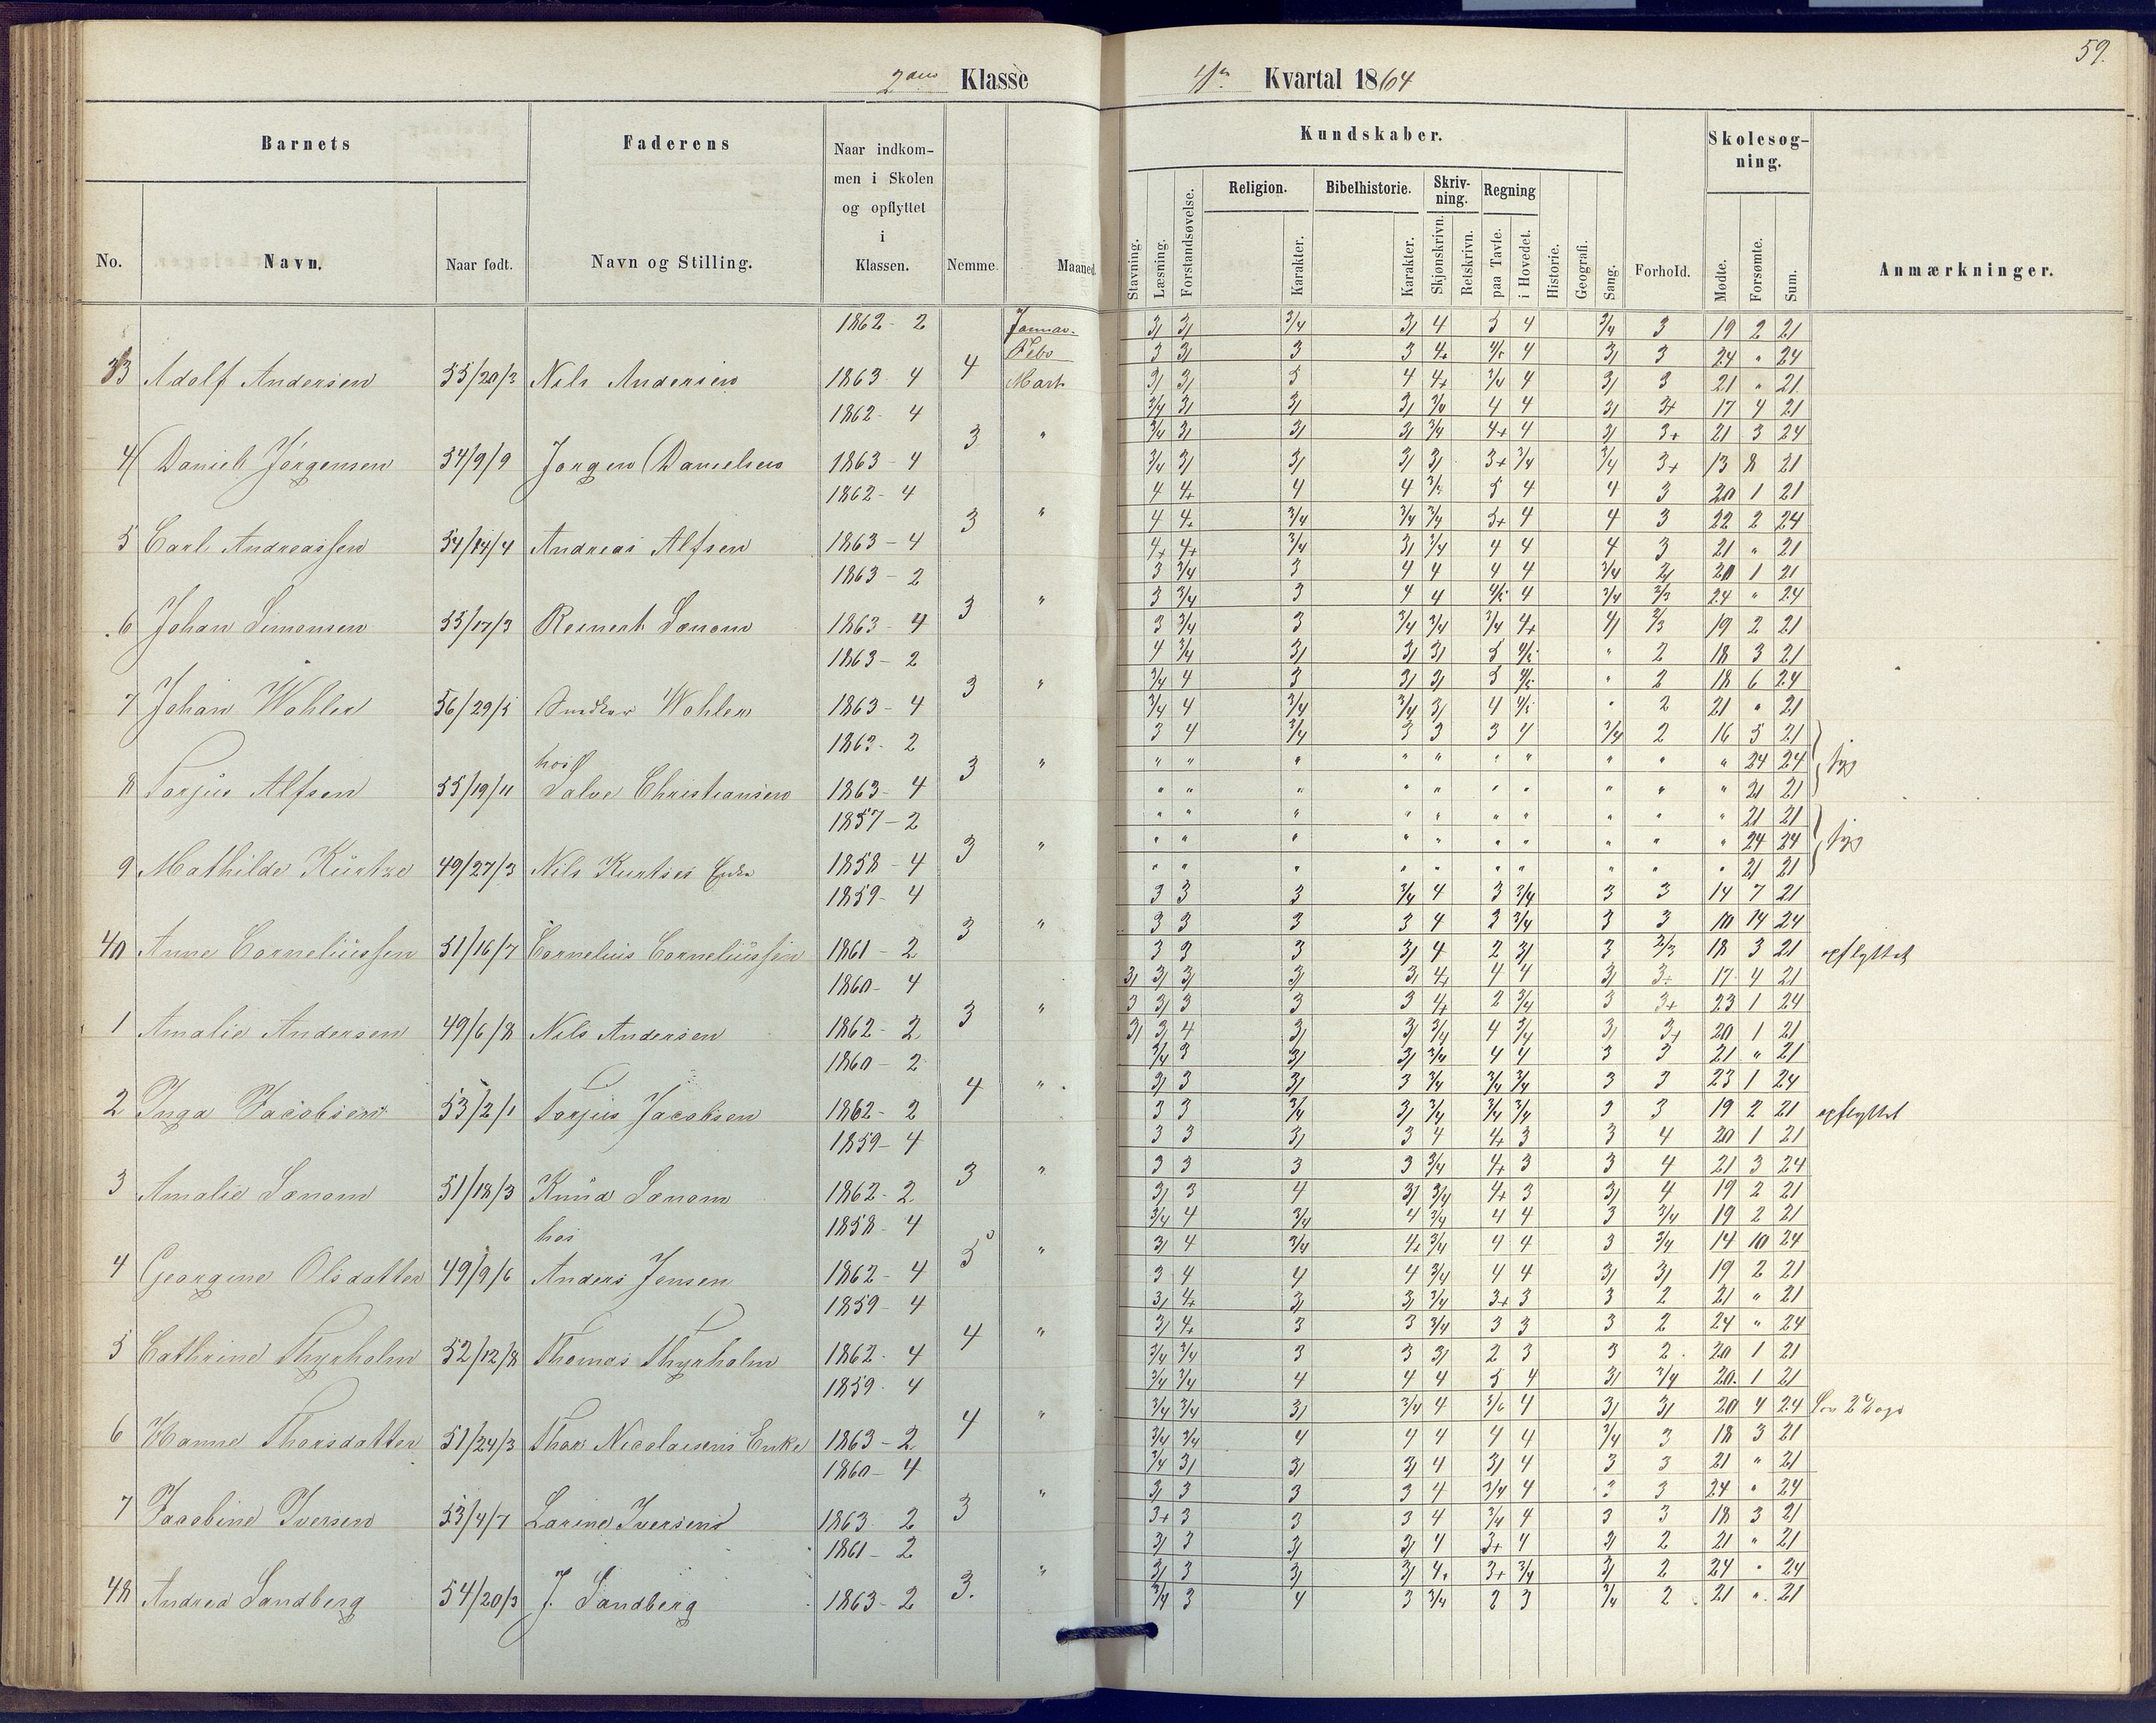 59.
2den Klasse
Kvartal 1864
Barnets
Faderens
Naar indkom-
men i Skolen
og opflyttet
i
Klassen.
Kundskaber.
Skolesøg-
ning.
Religion.
Bibelhistorie.
Skriv-
ning.
Regning
No.
Navn.
Naar født.
Navn og Stilling.
Nemme.
Maaned.
Stavning.
Læsning.
Forstandsøvelse.
Karakter.
Karakter.
Skjønskrivn.
Retskrivn.
paa Tavle.
i Hovedet.
Historie.
Geografi.
Sang.
Forhold.
Mødte.
Forsømte.
Sum.
Anmærkninger.
1862 - 2 Januar 3/ 3/ 3/4 3/ 4 5 4 3/4 3 19 2 21
Febr 3 3/ 3 3 4+ 4 3/ 3 24 " 24
33 Adolf Andersen 55/20/3 Nils Andersen 1863 4 4 Marts 3/ 3/ 5 4 4+ 3/4 4 3/ 3 21 " 21
1862 - 4 3/4 3/ 3/ 3/ 3/4 4 4 3/ 3+ 17 4 21
3 " 3/4 3/ 3/ 3/ 3/4 4+ 4 3/ 3+ 21 3 24
4 Daniel Jörgensen 54/9/9 Jörgen Danielsen 1863 - 4 3/4 3/ 3/ 3/ 3/ 3+ 3/4 3/4 3+ 13 8 21
1862 - 4 4 4+ 4 4 3/4 5 4 4 3 20 1 21
3 " 4 4+ 3/4 3/4 3/4 5+ 4 4 3 22 2 24
5 Carl Andreassen 54/14/4 Andreas Alfsen 1863 - 4 4+ 4+ 3/4 3/ 3/4 4 4 4 3 21 " 21
1863 - 2 3 3/4 3 4 4 4 4 3/4 2/ 20 1 21
3 " 3 3/4 3 4 4 4/5 4 3/4 2/3 24 " 24
6 Johan Simonsen 55/17/3 Reinert Sanom 1863 - 4 3 3/4 3 3/4 3/4 3/4 4+ 4/ 2/3 19 2 21
1863 - 2 4 3/4 3/ 3/ 3/ 5 4/5 " 2 18 3 21
3 " 3/4 4 3 3/ 3/ 5 4/5 " 2 18 6 24
7 Johan Wohler 56/29/5 Wohler 1863 - 4 3/4 4 3/4 3/4 3/ 4 4/5 " 2 21 " 21
1863 - 2 3 4 3/4 3 3 3 4 3/4 2 16 5 21
hos 3 " " " " " " " " " " " 24 24 syg
8 Torjus Alfsen 55/19/11 Salve Christiansen 1863 - 4 " " " " " " " " " " 21 21
1857 - 2 " " " " " " " " " " 21 21
3 " " " " " " " " " " " 24 24 syg
9 Mathilde Kürtze 49/27/3 Nils Kurtzes Enke 1858 - 4 " " " " " " " " " " 21 21
1859 - 4 3 3 3 3/4 4 3 3/4 3 3 14 7 21
3 " 3 3 3 3 4 2 3/4 3 3 10 14 24
40 Anne Corneliüssen 51/16/7 Cornelius Corneliüssen 1861 - 2 3 3 3 3/ 4 2 3/ 3 2/3 18 3 21 opflyttet
1860 - 4 3/ 3/ 3/ 3/ 3/ 4+ 4 4 3/ 3+ 17 4 21
3 " 3 3/ 3 3 3 4+ 2 3/4 3 3+ 23 1 24
1 Amalie Andersen 49/6/8 Nils Andersen 1862 - 2 3/ 3/ 4 3/ 3/ 3/4 4 3/4 3/ 3+ 20 1 21
1860 - 2 3/4 3 3/ 3/ 3/4 4 4 3 3 21 " 21
4 " 3/ 3 3/ 3 3/4 3/4 3/4 3 3 23 1 24
2 Inga Jacobsen 53/2/1 Torjus Jacobsen 1862 - 2 3 3 3/4 3/ 3/4 3/4 3/4 3 3 19 2 21 opflyttet
1859 - 4 3 3 3/ 3 4 4+ 3 3 4 20 1 21
3 " 3 3 3 3 3/4 4+ 3 3 4 21 3 24
3 Amalie Sanom 51/18/3 Knüd Sanom 1862 - 2 3/ 3 4 3/ 3/4 4+ 3 3/ 4 19 2 21
hos 1858 - 4 3/4 4 3/4 4 3/4 4 4 3 3/4 19 2 21
5 " 3/ 4 3/4 4+ 3/4 4 4 3 3/4 14 10 24
4 Georgine Olsdatter 49/9/6 Anders Jensen 1862 - 4 3 4 4 4 3/4 4 4 3/ 3/ 19 2 21
1859 - 4 3/ 4+ 3/ 3/ 3/4 3+ 3 3 2 21 " 21
4 " 3/ 4+ 3 3 3/4 3 3 3 2 24 " 24
5 Cathrine Thyrholm 52/12/8 Thomas Thyrholm 1862 - 4 3/4 3/4 3 3 3/ 2 3 3 2 20 1 21
1859 - 4 3/4 3/4 4 4 4 5 4 3/ 3/4 20 1 21
4 " 3/4 3/4 3/ 3/4 4 4 3/ 3/ 20 4 24
6 Hanne Thorsdatter 51/24/3 Thor Nicolaisens Enke 1863 - 2 3/4 3/4 4 4 4 4 4 3/4 3 18 3 21
1860 - 4 3/4 3/ 3/ 3/ 4 3/ 4 3 3 21 " 21
3 " 3/ 3 3 3 4 3/4 4 3 3 24 " 24
7 Jacobine Iversen 53/4/7 Larine Iversens 1863 2 3+ 3 3 3 4 3/4 4 3 3 18 3 21
1861 - 2 3/ 3 3/ 3/ 4 3+ 4 3/ 2 21 " 21
3. " 3/ 3 3/ 3/ 4+ 3+ 3/4 3/ 2 24 " 24
48 Andrea Sandberg 54/20/3 J. Sandberg 1863 - 2 3/4 3 4 3 3/4 2 3 3/4 2 21 " 21